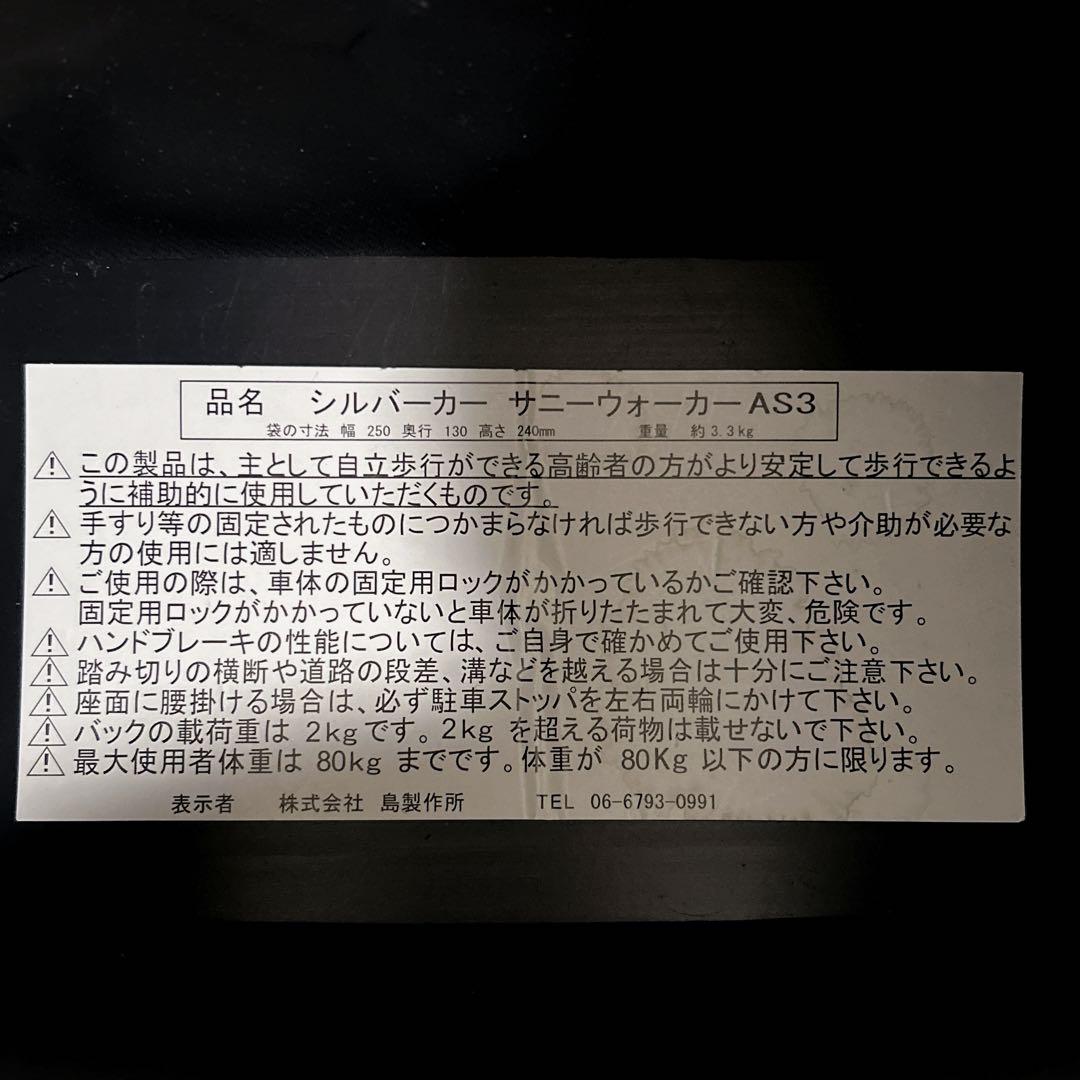 品名 シルバーカー サニーウォーカーAS3
袋の寸法 幅 250 奥行 130 高さ 240mm 重量 約3.3kg
⚠ この製品は、主として自立歩行ができる高齢者の方がより安定して歩行できるよ
うに補助的に使用していただくものです。
⚠ 手すり等の固定されたものにつかまらなければ歩行できない方や介助が必要な
方の使用には適しません。
⚠ ご使用の際は、車体の固定用ロックがかかっているかご確認下さい。
固定用ロックがかかっていないと車体が折りたたまれて大変、危険です。
⚠ ハンドブレーキの性能については、ご自身で確かめてご使用下さい。
⚠ 踏み切りの横断や道路の段差、溝などを越える場合は十分にご注意下さい。
⚠ 座面に腰掛ける場合は、必ず駐車ストッパを左右両輪にかけて下さい。
⚠ バックの載荷重は 2kgです。2kg を超える荷物は載せないで下さい。
⚠ 最大使用者体重は 80kg までです。体重が 80Kg 以下の方に限ります。
表示者 株式会社 島製作所 TEL 06-6793-0991